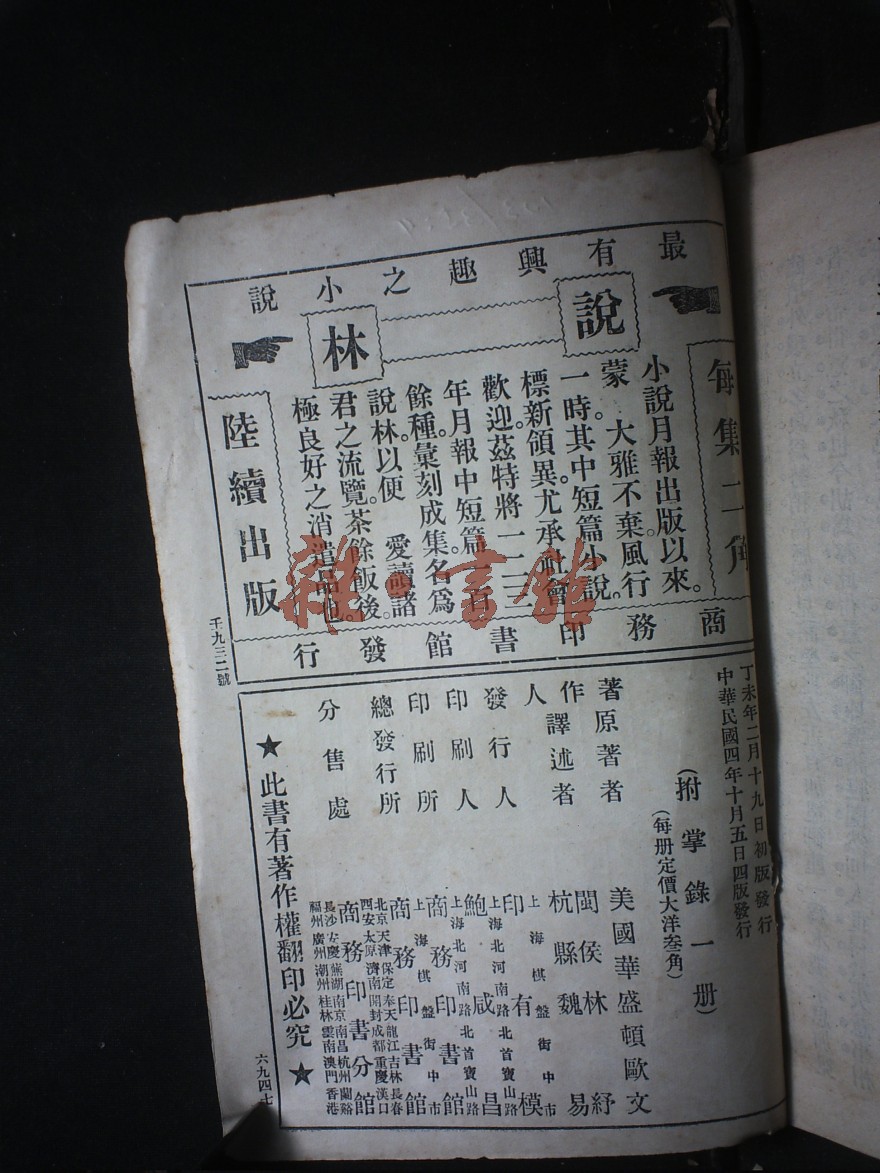 最有興趣之小說
說林
每集二角
小說月報出版以來。
蒙　大雅不棄風行
一時其中短篇小說。
標新領異尤承社會
歡迎。茲特將一二三
年月報中短篇
餘種。彙刻成集名爲
說林以便　愛讀諸
君之流覽茶餘飯後。
極良好之消遣品也。
陸續出版
商務印書館發行
雜書館
丁未年二月十九日初版發行
中華民國四年十月五日四版發行
（拊掌錄一册）
（每册定價大洋叁角）
著作人
原著者　美國華盛頓歐文
譯述者　閩侯林紓
杭縣魏易
發行人　上海棋盤街中市
印有模
印刷人　上海北河南路北首寶山路
鮑咸昌
印刷所　上海北河南路北首寶山路
商務印書館
總發行所　上海棋盤街中市
商務印書館
分售處　北京天津保定奉天龍江吉林長春
西安太原濟南開封成都重慶漢口
商務印書分館
長沙安慶蕪湖南京南昌杭州蘭谿
福州廣州潮州桂林雲南澳門香港
★此書有著作權翻印必究★